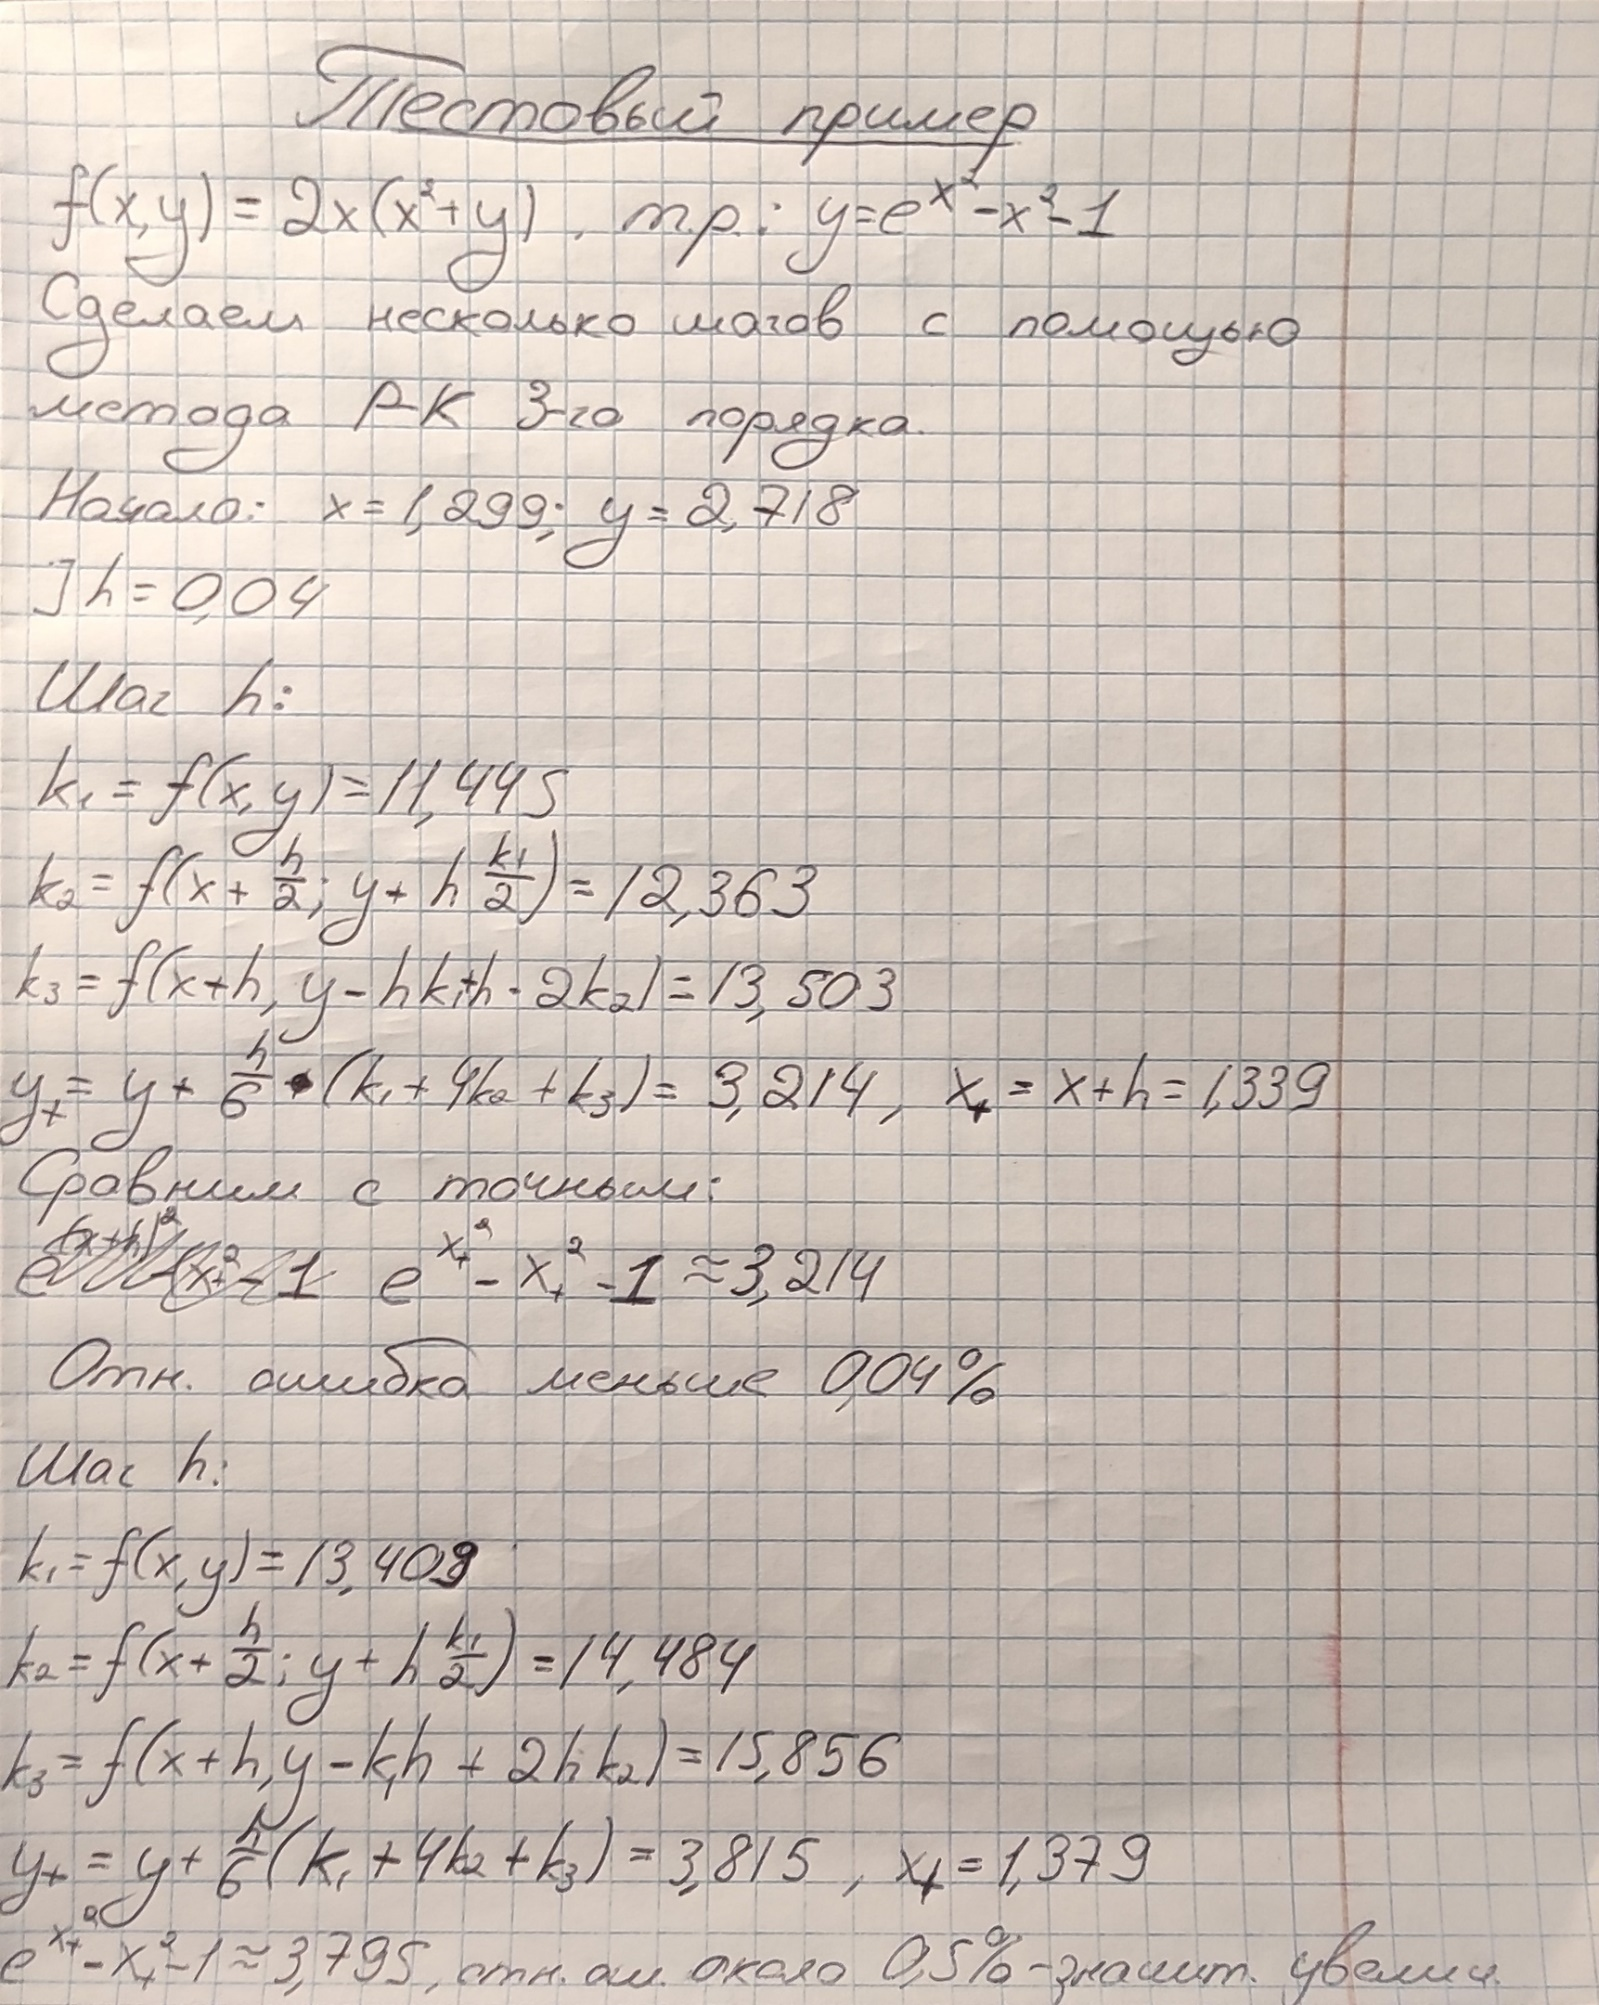 Тестовый пример
f(x,y) = 2x(x²+y), т.р.: y=e^{x²}-x²-1
Сделаем несколько шагов с помощью
метода Р-К 3-го порядка.
Начало: x=1,299; y=2,718
] h=0,04
Шаг h:
k₁ = f(x,y)=11,445
k₂ = f(x+h/2; y+h k₁/2)=12,363
k₃ = f(x+h, y-hk₁+h·2k₂)=13,503
y₊= y + h/6·(k₁+4k₂+k₃)= 3,214, x₊ = x+h=1,339
Сравним с точным:
e^{x₊²}-x₊²-1 ≈3,214
Отн. ошибка меньше 0,04%
Шаг h:
k₁=f(x,y)=13,409
k₂=f(x+h/2; y+h k₁/2)=14,484
k₃=f(x+h,y-k₁h+2hk₂)=15,856
y₊ = y+h/6(k₁+4k₂+k₃)=3,815, x₊=1,379
e^{x₊²}-x₊²-1≈3,795, отн. ош. около 0,5%-значит. увелич.